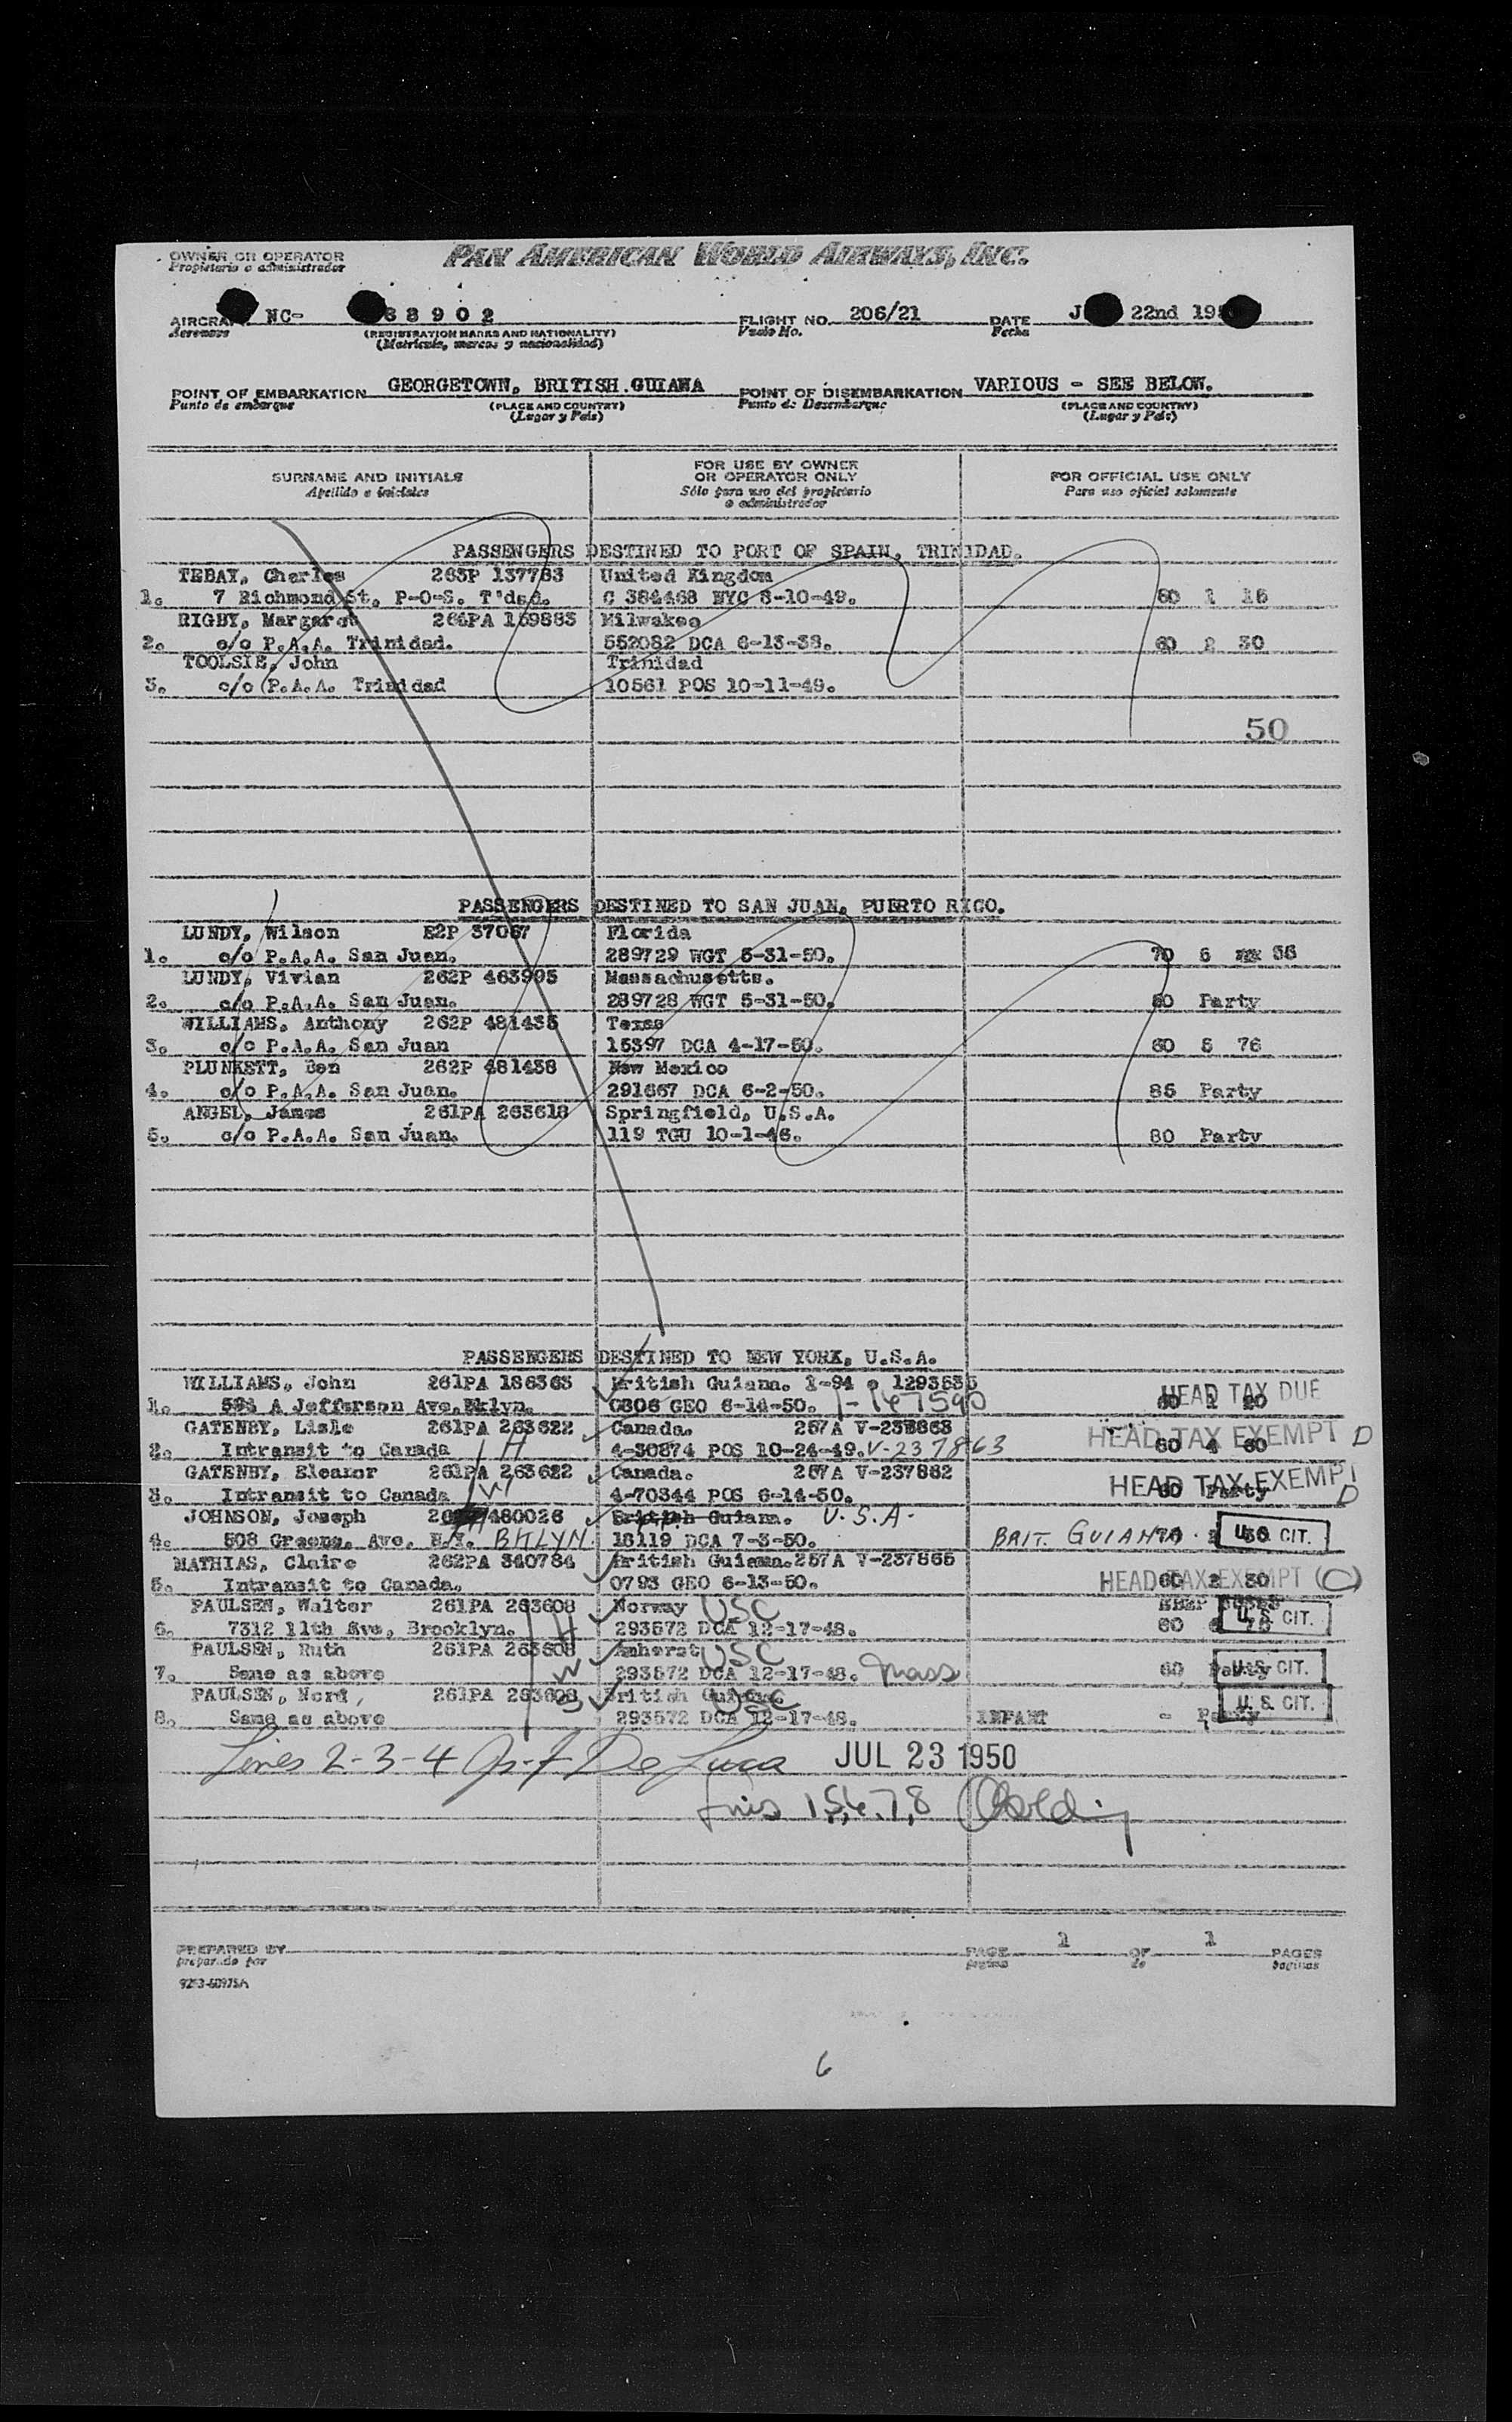 OWNER OR OPERATOR
Propietario o administrador
PAN AMERICAN WORLD AIRWAYS, INC.
NC- 88902
FLIGHT NO. 206/21
Vuelo No.
DATE J 22nd 19
Fecha
Aeronave
(REGISTRATION MARKS AND NATIONALITY)
(Matrícula, marcas y nacionalidad)
POINT OF EMBARKATION GEORGETOWN, BRITISH GUIANA
Punto de embarque
(PLACE AND COUNTRY)
(Lugar y País)
POINT OF DISEMBARKATION VARIOUS - SEE BELOW.
Punto de Desembarque
(PLACE AND COUNTRY)
(Lugar y País)
SURNAME AND INITIALS
Apellido e iniciales
FOR USE BY OWNER
OR OPERATOR ONLY
Sólo para uso del propietario
o administrador
FOR OFFICIAL USE ONLY
Para uso oficial solamente
PASSENGERS DESTINED TO PORT OF SPAIN, TRINIDAD.
TEBAY, Charles 263P 137783 United Kingdom
1. 7 Richmond St, P-O-S. T'dad. C 384468 NYC 8-10-49. 60 1 16
RIGBY, Margaret 264PA 159883 Milwakee
2. c/o P.A.A. Trinidad. 552082 DCA 6-13-38. 60 2 30
TOOLSIE, John Trinidad
3. c/o P.A.A. Trinidad 10561 POS 10-11-49.
50
PASSENGERS DESTINED TO SAN JUAN, PUERTO RICO.
LUNDY, Wilson E2P 37067 Florida
1. c/o P.A.A. San Juan. 289729 WGT 5-31-50. 70 5 56
LUNDY, Vivian 262P 463995 Massachusetts.
2. c/o P.A.A. San Juan. 289728 WGT 5-31-50. 60 Party
WILLIAMS, Anthony 262P 481435 Texas
3. c/o P.A.A. San Juan 15397 DCA 4-17-50. 60 5 76
PLUNKETT, Ben 262P 481438 New Mexico
4. c/o P.A.A. San Juan. 291667 DCA 6-2-50. 85 Party
ANGEL, James 261PA 263618 Springfield, U.S.A.
5. c/o P.A.A. San Juan. 119 TGU 10-1-46. 80 Party
PASSENGERS DESTINED TO NEW YORK, U.S.A.
WILLIAMS, John 261PA 186363 British Guiana. I-94 1293535
1. A Jefferson Ave. Bklyn. 0806 GEO 6-14-50. I-147590 HEAD TAX DUE
GATENBY, Lisle 261PA 263622 Canada. 257A
2. Intransit to Canada H 4-30874 POS 10-24-49. V-237863 HEAD TAX EXEMPT D
GATENBY, Eleanor 261PA 263622 Canada. 257A V-237882
3. Intransit to Canada W 4-70344 POS 6-14-50. HEAD TAX EXEMPT D
JOHNSON, Joseph 480026 British Guiana. U.S.A.
4. 508 Greene, Ave. BKLYN. 18119 DCA 7-3-50. BRIT. GUIANA. U.S. CIT.
MATHIAS, Claire 262PA 340784 British Guiana. 257A V-237865
5. Intransit to Canada. 0793 GEO 6-13-50. HEAD TAX EXEMPT (C)
PAULSEN, Walter 261PA 263608 Norway USC
6. 7312 11th Ave, Brooklyn. H 293572 DCA 12-17-48. U.S. CIT.
PAULSEN, Ruth 261PA 263608 Amherst USC
7. Same as above W 293572 DCA 12-17-48. Mass 60 Party U.S. CIT.
PAULSEN, Nord, 261PA 263608 British Guiana USC
8. Same as above 293572 DCA 12-17-48. INFANT - Party U.S. CIT.
Lines 2-3-4 De Luca JUL 23 1950
PREPARED BY
preparado por
PAGE 1 OF 1 PAGES
página de páginas
6